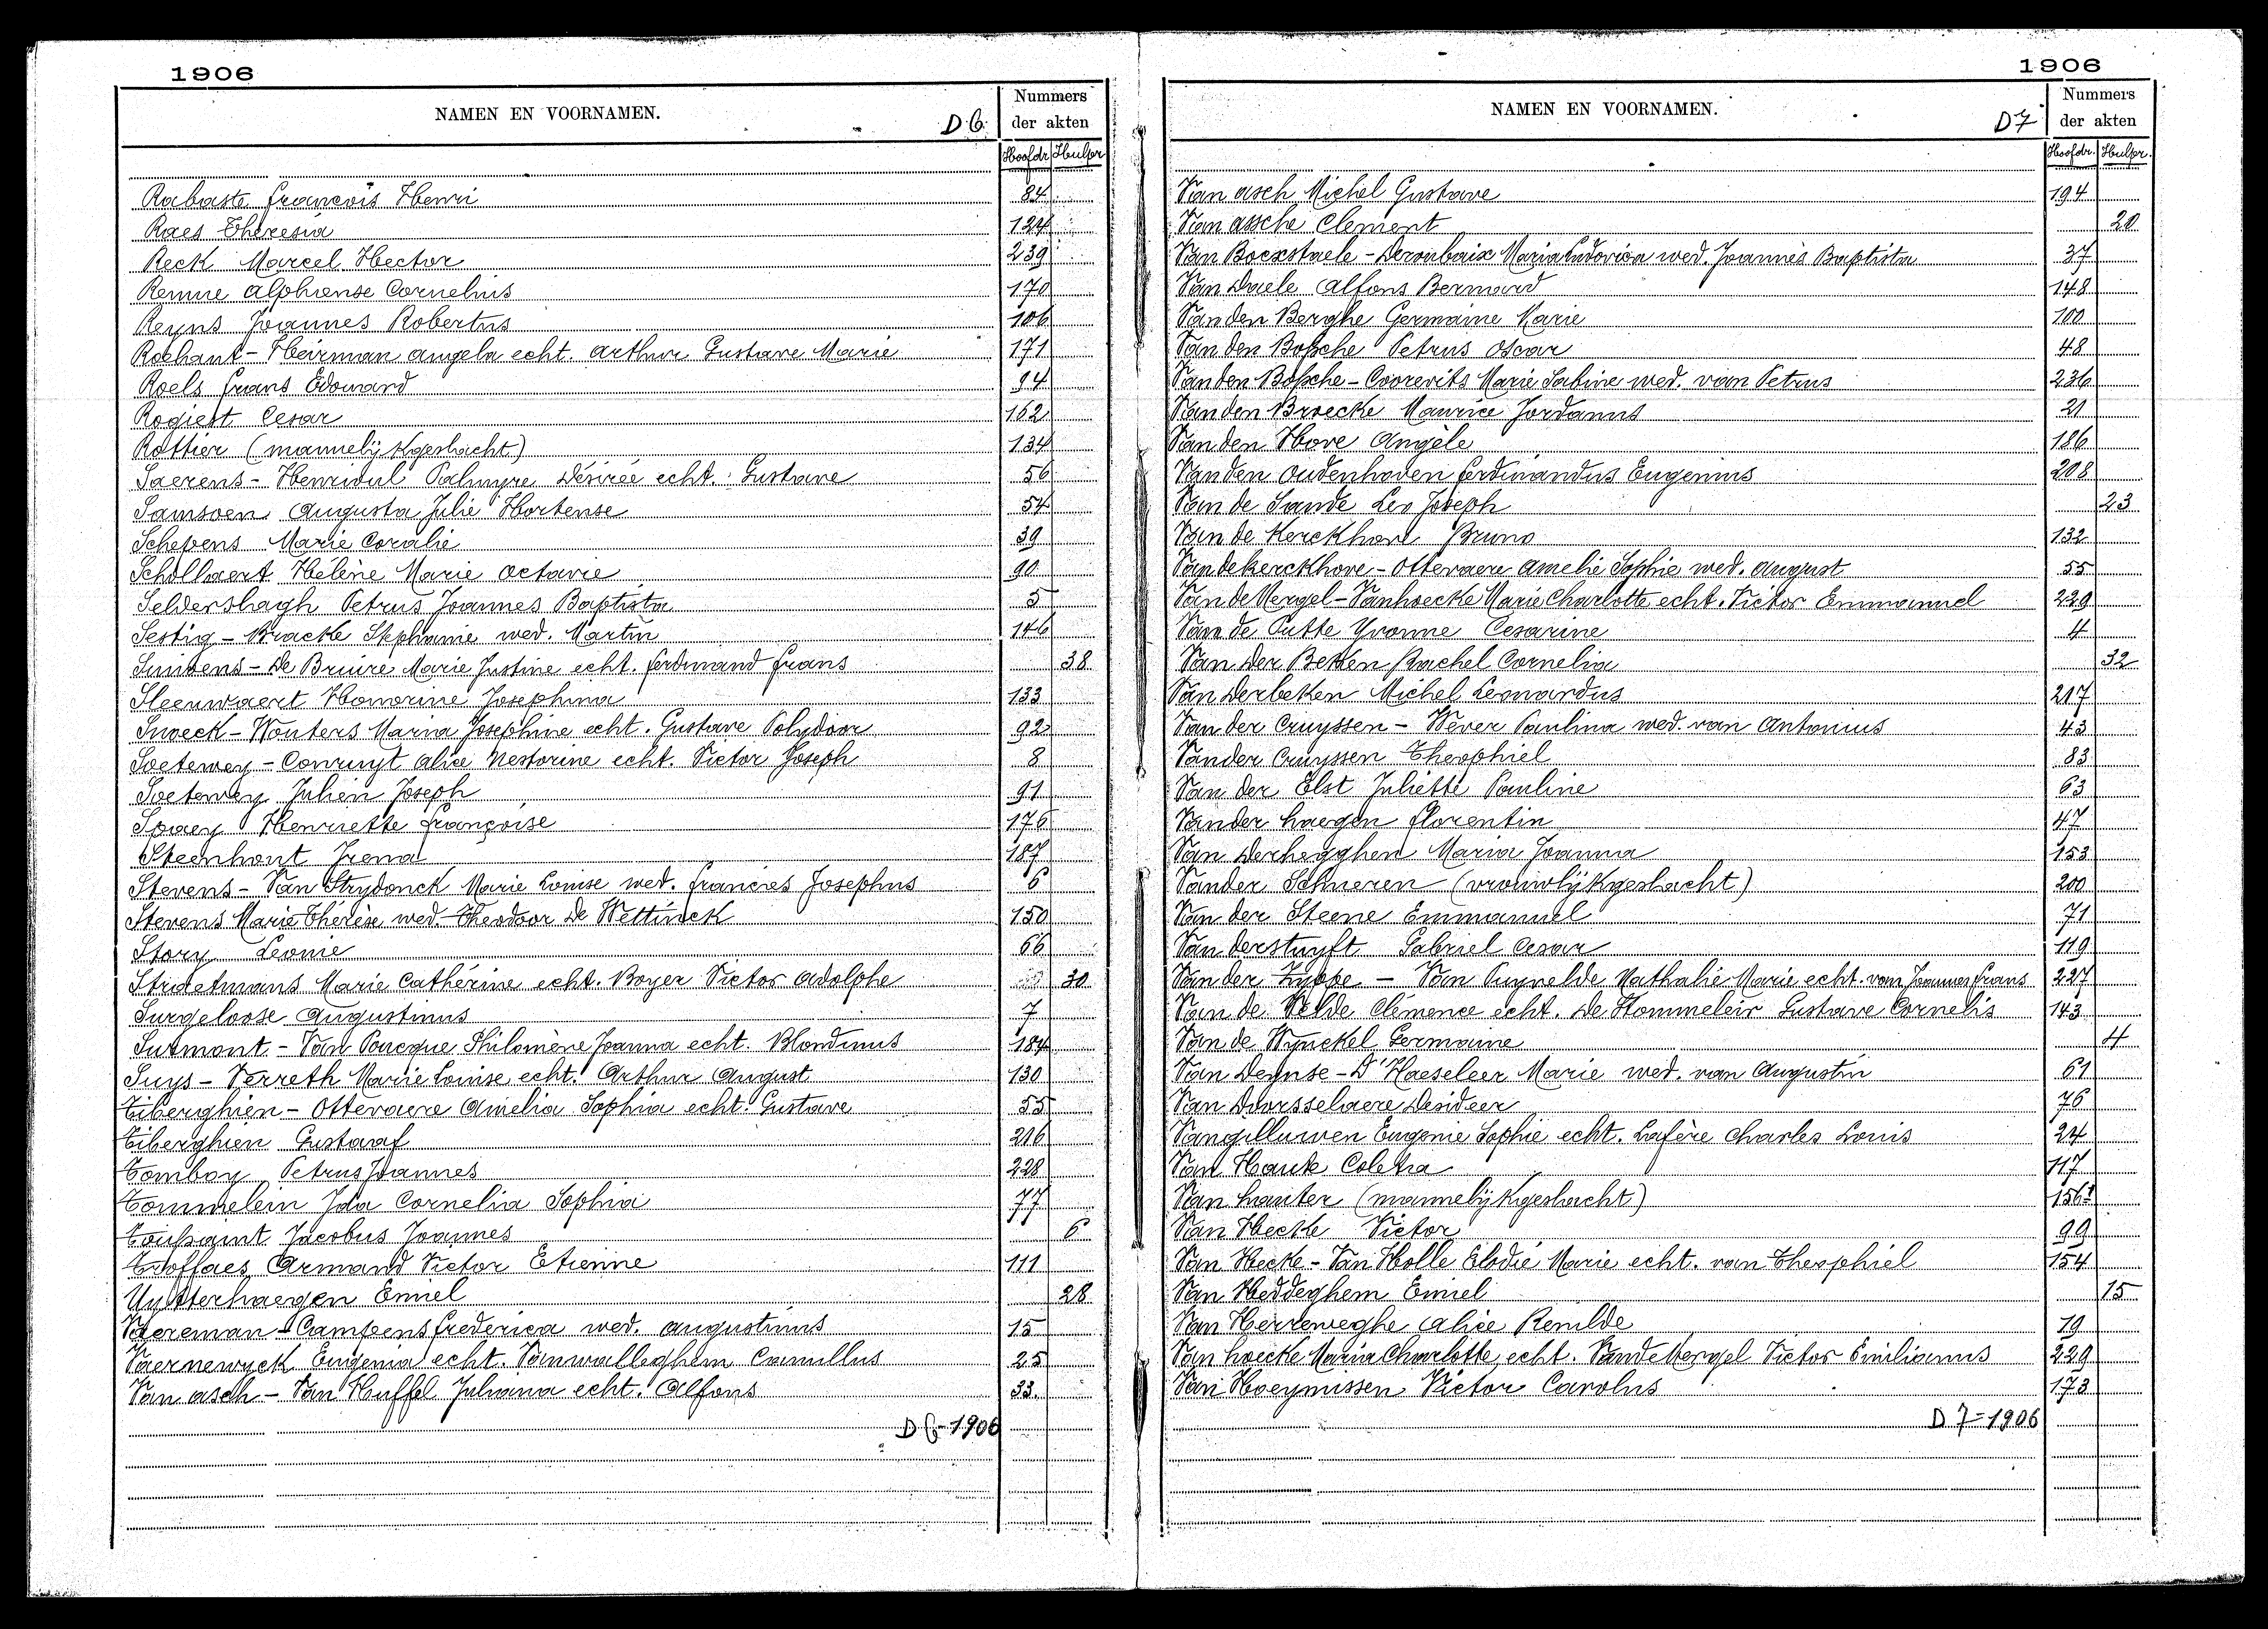 1906
NAMEN EN VOORNAMEN. D 6
Nummers
der akten
Hoofdr. Hulpr.
Rabaste François Henri 84
Raes Theresia 124
Reck Marcel Hector 239
Remue Alphonse Cornelius 170
Reyns Joannes Robertus 106
Rochant - Heirman Angela echt. Arthur Gustave Marie 171
Roels Frans Edouard 94
Rogiest Cesar 162
Rottier (mannelijk geslacht) 134
Saerens - Henri Palmyre Désirée echt. Gustave 56
Samsoen Augusta Julie Hortense 54
Schepens Marie Coralie 39
Schollaert Hélène Marie Octavie 90
Seldershagh Petrus Joannes Baptista 5
Sestig - Bracke Stephanie wed. Martin 146
De Bruire Marie Justine echt. Ferdinand Frans 38
Sleeuwaert Honorine Josephina 133
Snoeck - Wouters Maria Josephine echt. Gustave Polydoor 92
Soetewey - Conruyt Alice Nestorine echt. Victor Joseph 8
Soetewey Julien Joseph 91
Spaey Henriette Françoise 176
Steenhout Irena 187
Stevens - Van Strydonck Marie Louise wed. Francies Josephus 6
Stevens Marie Thérèse wed. Theodoor De Wettinck 150
Story Leonie 66
Straetmans Marie Cathérine echt. Boyer Victor Adolphe 30
Surgeloose Augustinus 7
Surmont - Van Poucque Philomène Joanna echt. Blondinus 184
Suys - Verreth Marie Louise echt. Arthur August 130
Tiberghien - Ottevaere Amelia Sophia echt. Gustave 55
Tiberghien Gustaaf 216
Tomboy Petrus Joannes 228
Tommelein Ida Cornelia Sophia 77
Toussaint Jacobus Joannes 6
Troffaes Armand Victor Etienne 111
Uytterhaegen Emiel 28
Vaereman - Campens Frederica wed. Augustinus 15
Vaernewyck Eugenia echt. Vanwalleghem Camillus 25
Van Asch - Van Huffel Juliana echt. Alfons 33
D 6 - 1906
1906
NAMEN EN VOORNAMEN. D 7
Nummers
der akten
Hoofdr. Hulpr.
Van Asch Michel Gustave 194
Van Assche Clement 20
Van Bocxstaele - Deroubaix Maria Ludovica wed. Joannes Baptista 37
Van Daele Alfons Bernard 148
Van den Berghe Germaine Marie 100
Van den Bossche Petrus Oscar 48
Van den Bossche - Coorevits Marie Sabine wed. van Petrus 236
Van den Broecke Maurice Jordanus 21
Van den Hove Angèle 186
Van den Oudenhoven Ferdinandus Eugenius 208
Van de Sande Leo Joseph 23
Van de Kerckhove Bruno 132
Van dekerckhove - Ottevaere Amelie Sophie wed. August 55
Van de Mergel - Vanhoecke Marie Charlotte echt. Victor Emmanuel 229
Van de Putte Yvonne Cesarine 4
Van der Beken Rachel Cornelia 32
Van Derbeken Michel Leonardus 217
Van der Cruyssen - Wever Paulina wed. van Antonius 43
Vander Cruyssen Theophiel 83
Van der Elst Juliette Pauline 63
Vander haegen Florentin 47
Van Derhegghen Maria Joanna 153
Vander Schueren (vrouwlijk geslacht) 200
Van der Steene Emmanuel 71
Van derstuyft Gabriel Cesar 119
Van der Zyppe - Van Puyvelde Nathalie Marie echt. van Joannes Frans 227
Van de Velde Clémence echt. De Hommeleir Gustave Cornelis 143
Van de Wynckel Germaine 4
Van Deynse - D'Haeseleer Marie wed. van Augustin 61
Van Doorsselaere Desideer 76
Vangilluwen Eugenie Sophie echt. Lafère Charles Louis 24
Van Haute Coleta 117
Van hauter (mannelijk geslacht) 156
Van Hecke Victor 99
Van Hecke - Van Holle Elodie Marie echt. van Theophiel 154
Van Heddeghem Emiel 15
Van Herreweghe Alice Renilde 19
Van hoecke Maria Charlotte echt. Vande Mergel Victor Emilianus 229
Van Hoeymissen Victor Carolus 173
D 7 = 1906